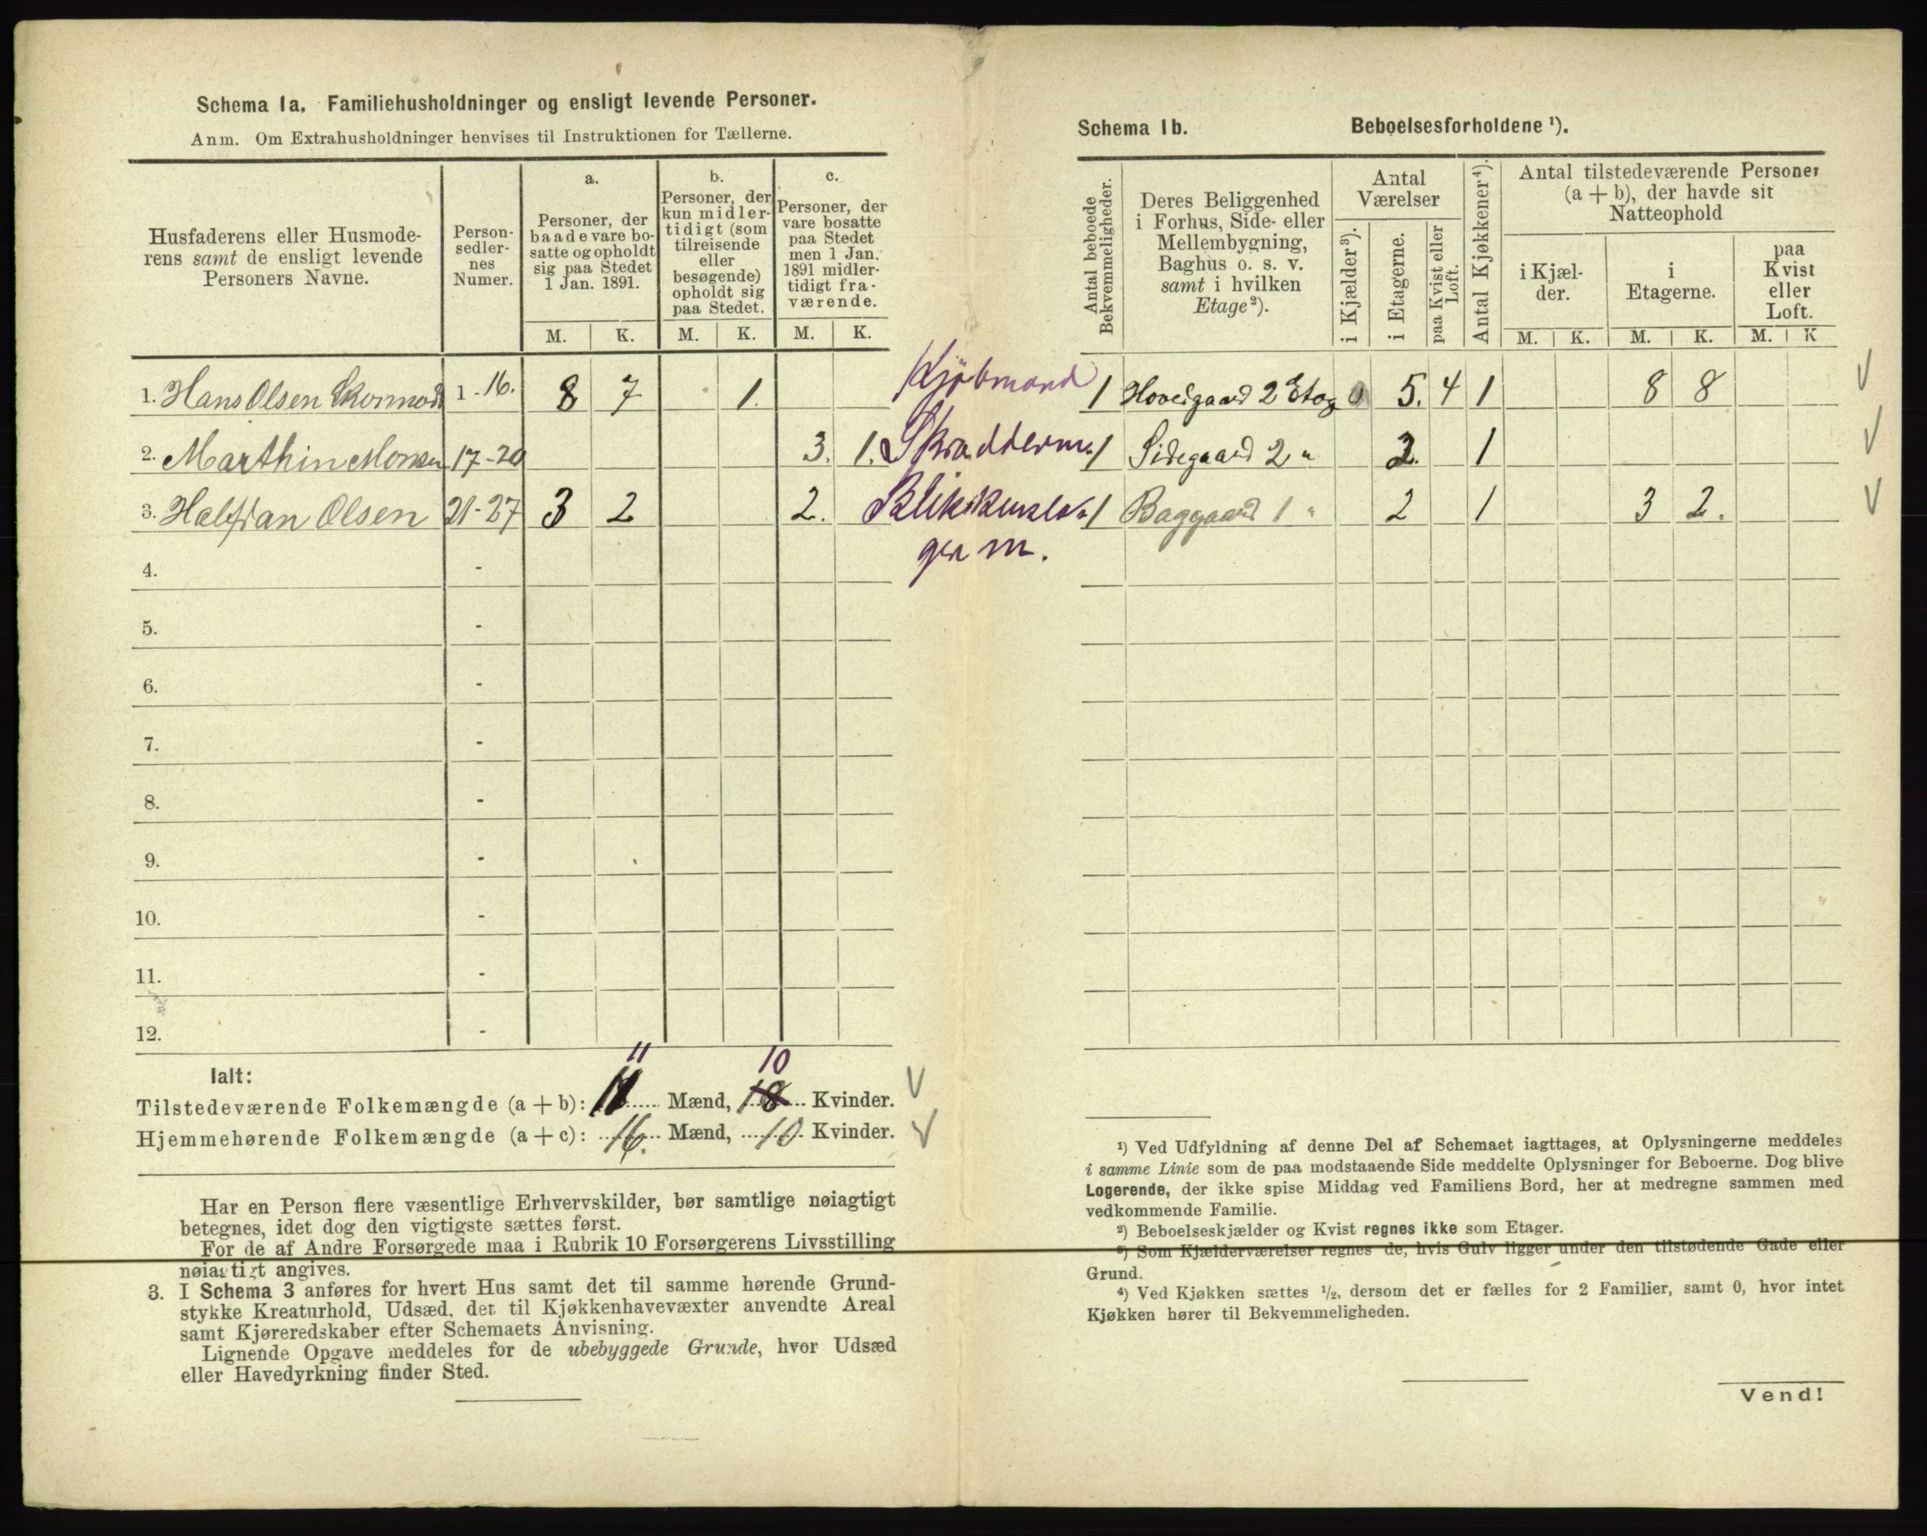 Schema 1a. Familiehusholdninger og ensligt levende Personer.
Anm. Om Extrahusholdninger henvises til Instruktionen for Tællerne.
Husfaderens eller Husmode-
rens samt de ensligt levende
Personers Navne.
Person-
sedler-
nes
Numer.
a.
Personer, der
baade vare bo-
satte og opholdt
sig paa Stedet
1 Jan. 1891.
b.
Personer, der
kun midler-
tidigt (som
tilreisende
eller
besøgende)
opholdt sig
paa Stedet.
c.
Personer, der
vare bosatte
paa Stedet
men 1 Jan.
1891 midler-
tidigt fra-
værende.
M. K. M. K. M. K.
1. Hans Olsen 1 - 16. 8 7 1. Kjøbmand
2. Marthin Monsen 17 - 20 3. 1. Skrædderm.
3. Halfdan Olsen 21 - 27 3 2 2. Blikkensla-
ger m.
4. -
5. -
6. -
7. -
8. -
9. -
10. -
11. -
12. -
Ialt:
11 10
Tilstedeværende Folkemængde (a + b): 11 Mænd, 18 Kvinder.
Hjemmehørende Folkemængde (a + c): 16. Mænd, 10. Kvinder.
Har en Person flere væsentlige Erhvervskilder, bør samtlige nøiagtigt
betegnes, idet dog den vigtigste sættes først.
For de af Andre Forsørgede maa i Rubrik 10 Forsørgerens Livsstilling
nøiagtigt angives.
3. I Schema 3 anføres for hvert Hus samt det til samme hørende Grund-
stykke Kreaturhold, Udsæd, det til Kjøkkenhavevæxter anvendte Areal
samt Kjøreredskaber efter Schemaets Anvisning.
Lignende Opgave meddeles for de ubebyggede Grunde, hvor Udsæd
eller Havedyrkning finder Sted.
Schema 1b. Beboelsesforholdene ¹).
Antal beboede
Bekvemmeligheder.
Deres Beliggenhed
i Forhus, Side- eller
Mellembygning,
Baghus o. s. v.
samt i hvilken
Etage²).
Antal
Værelser
i Kjælder³).
i Etagerne.
paa Kvist eller
Loft.
Antal Kjøkkener⁴).
Antal tilstedeværende Personer
(a + b), der havde sit
Natteophold
i Kjæl-
der.
i
Etagerne.
paa
Kvist
eller
Loft.
M. K. M. K. M. K
1 Hovedgaard 2 Etag 0 5. 4 1 8 8
1 Sidegaard 2 " 2. 1
1 Baggaard 1 " 2 1 3 2.
¹) Ved Udfyldning af denne Del af Schemaet iagttages, at Oplysningerne meddeles
i samme Linie som de paa modstaaende Side meddelte Oplysninger for Beboerne. Dog blive
Logerende, der ikke spise Middag ved Familiens Bord, her at medregne sammen med
vedkommende Familie.
²) Beboelseskjælder og Kvist regnes ikke som Etager.
³) Som Kjælderværelser regnes de, hvis Gulv ligger under den tilstødende Gade eller
Grund.
⁴) Ved Kjøkken sættes ½, dersom det er fælles for 2 Familier, samt 0, hvor intet
Kjøkken hører til Bekvemmeligheden.
Vend!